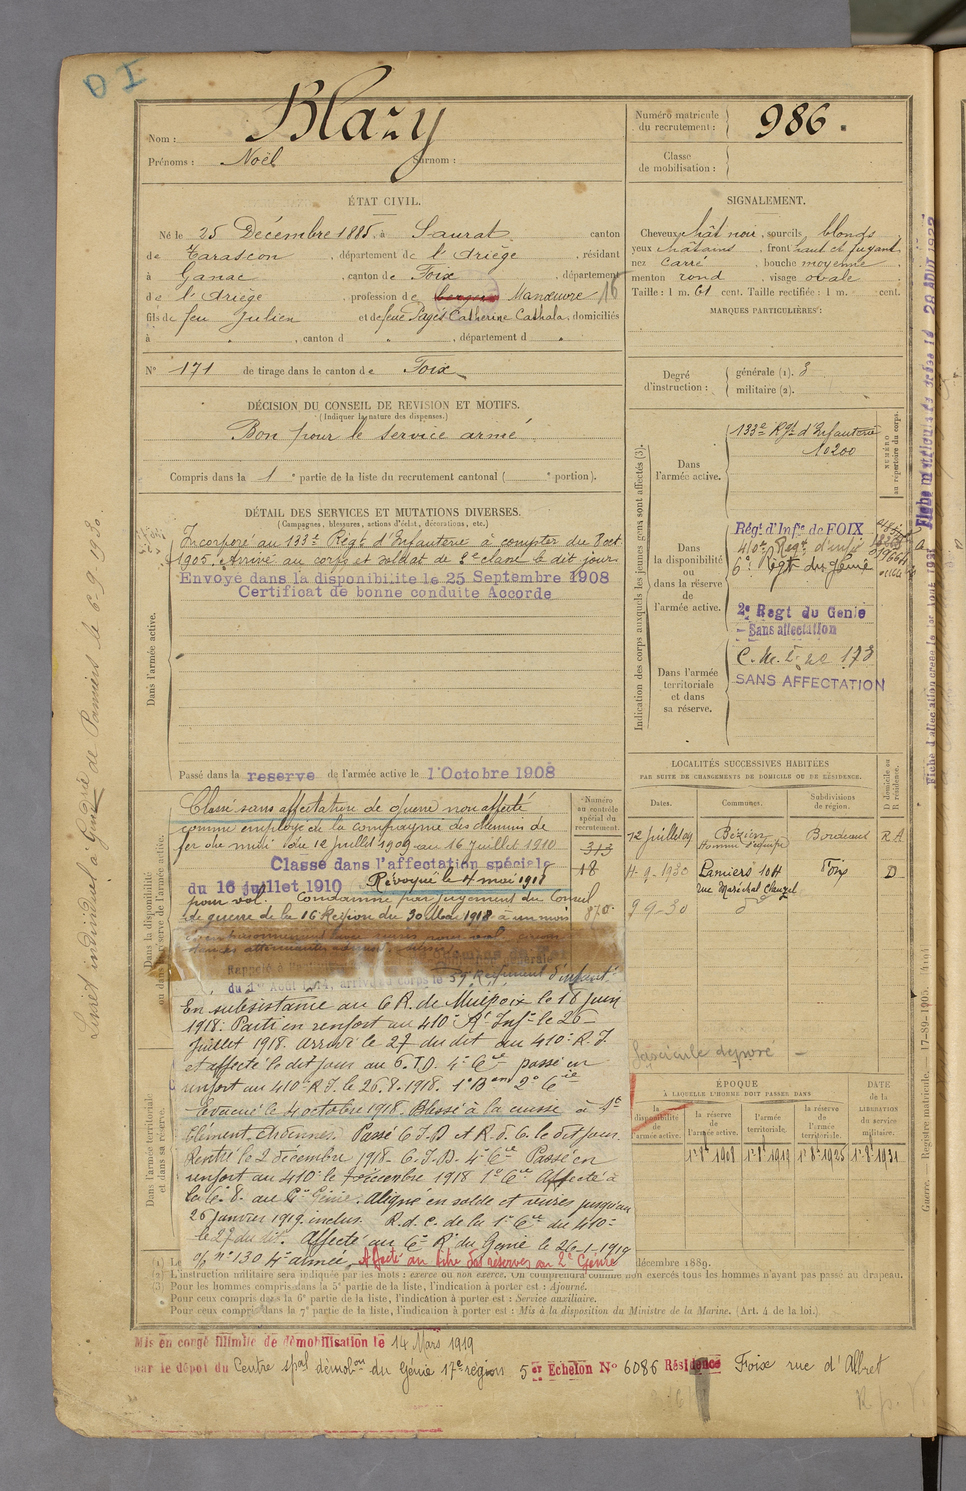 D I
Blazy
Nom :
Prénoms : Noël Surnom :
Numéro matricule du recrutement : 986.
Classe de mobilisation :
ÉTAT CIVIL.
Né le 25 Décembre 1885 à Saurat, canton
de Tarascon, département de l'Ariège, résidant
à Ganac, canton de Foix, département
de l'Ariège, profession de berger Manœuvre 16
fils de feu Julien et de feue Pagès Catherine Cathala, domiciliés
à " , canton d " , département d "
N° 171 de tirage dans le canton de Foix
DÉCISION DU CONSEIL DE REVISION ET MOTIFS.
(Indiquer la nature des dispenses.)
Bon pour le service armé
Compris dans la 1 e partie de la liste du recrutement cantonal ( e portion).
SIGNALEMENT.
Cheveux chât noir, sourcils blonds
yeux châtains, front haut et fuyant
nez carré, bouche moyenne
menton rond, visage ovale
Taille : 1 m. 61 cent. Taille rectifiée : 1 m. cent.
MARQUES PARTICULIÈRES :
Degré d'instruction : générale (1). 3
militaire (2).
DÉTAIL DES SERVICES ET MUTATIONS DIVERSES.
(Campagnes, blessures, actions d'éclat, décorations, etc.)
Dans l'armée active.
Incorporé au 133e Régt d'Infanterie à compter du 8 oct
1905. Arrivé au corps et soldat de 2e classe le dit jour.
Envoyé dans la disponibilité le 25 Septembre 1908
Certificat de bonne conduite Accordé
Passé dans la reserve de l'armée active le 1 Octobre 1908
Indication des corps auxquels les jeunes gens sont affectés (3).
NUMÉRO au répertoire du corps.
Dans l'armée active.
133e Rgt d'Infanterie
10200
Dans la disponibilité ou dans la réserve de l'armée active.
Rég. d'Infie de FOIX
410e Regt d'infie
6e Regt du Génie
2e Regt du Genie
Sans affectation
Dans l'armée territoriale et dans sa réserve.
C.M.I 20 173
SANS AFFECTATION
LOCALITÉS SUCCESSIVES HABITÉES
PAR SUITE DE CHANGEMENTS DE DOMICILE OU DE RÉSIDENCE.
Dates. Communes. Subdivisions de région. D domicile ou R résidence.
12 Juillet 09 Bézien Bordeaux R A
Homme d'équipe
4-9-1930 Pamiers 104 Foix D
rue Maréchal Clauzel
9 9-30 d°
Fascicule déposé
ÉPOQUE
À LAQUELLE L'HOMME DOIT PASSER DANS
la disponibilité de l'armée active. la réserve de l'armée active. l'armée territoriale. la réserve de l'armée territoriale.
DATE DE LA LIBÉRATION DU SERVICE militaire.
1er 8bre 1908 1er 8bre 1919 1er 8bre 1925 1er 8bre 1931
Dans la disponibilité ou dans la réserve de l'armée active.
Numéro au contrôle spécial du recrutement
313
18
870
Classé sans affectation de guerre non affecté
comme employé de la compagnie des chemins de
fer du midi du 12 Juillet 1909 au 16 Juillet 1910
Classé dans l'affectation spéciale
du 16 juillet 1910 Révoqué le 4 mai 1918
pour vol. Condamné par jugement du Conseil
de guerre de la 16 Région du 30 Mai 1918 à un mois
du 1er Août 1914, arrivé au corps le 59 Régiment d'infant.
En subsistance au 6 R. de Mulpoix le 18 juin
1918. Parti en renfort au 410e R. Inf. le 26
Juillet 1918. Arrivé le 27 du dit au 410e R. I.
et affecté le dit jour au 6. I.D. 4e Cie passé en
renfort au 410e R. I. le 26. 8. 1918. 1er Bon 2e Cie
Evacué le 4 octobre 1918. Blessé à la cuisse à St
Clément, Ardennes. Passé C.I.D et R.d.C. le dit jour.
Rentré le 2 décembre 1918. C.I.D. 4e Cie Passé en
renfort au 410e le 7 décembre 1918 1e Cie Affecté à
la C. D. au 6e Génie. Aligné en solde et vivres jusqu'au
26 janvier 1919 inclus. R.d.C. de la 1e Cie du 410e
le 27 du dit. Affecté au 6e R. du Génie le 26-1-1919
n° 130 4e armée, Affecté au titre des réserves au 2e Génie
Dans l'armée territoriale et dans sa réserve.
(1) Le décembre 1889.
(2) L'instruction militaire sera indiquée par les mots : exercé ou non exercé. On comprendra comme non exercés tous les hommes n'ayant pas passé au drapeau.
(3) Pour les hommes compris dans la 5e partie de la liste, l'indication à porter est : Ajourné.
Pour ceux compris dans la 6e partie de la liste, l'indication à porter est : Service auxiliaire.
Pour ceux compris dans la 7e partie de la liste, l'indication à porter est : Mis à la disposition du Ministre de la Marine. (Art. 4 de la loi.)
Mis en congé illimité de démobilisation le 14 Mars 1919
par le dépôt du Centre spal démobon du Génie 17e région 5er Echelon N° 6086 Résidence Foix rue d'Albret
R. p.
Livret individuel à Génie de Pamiers le 6-9-1930.
Guerre. Registre matricule. 17-89-1905.